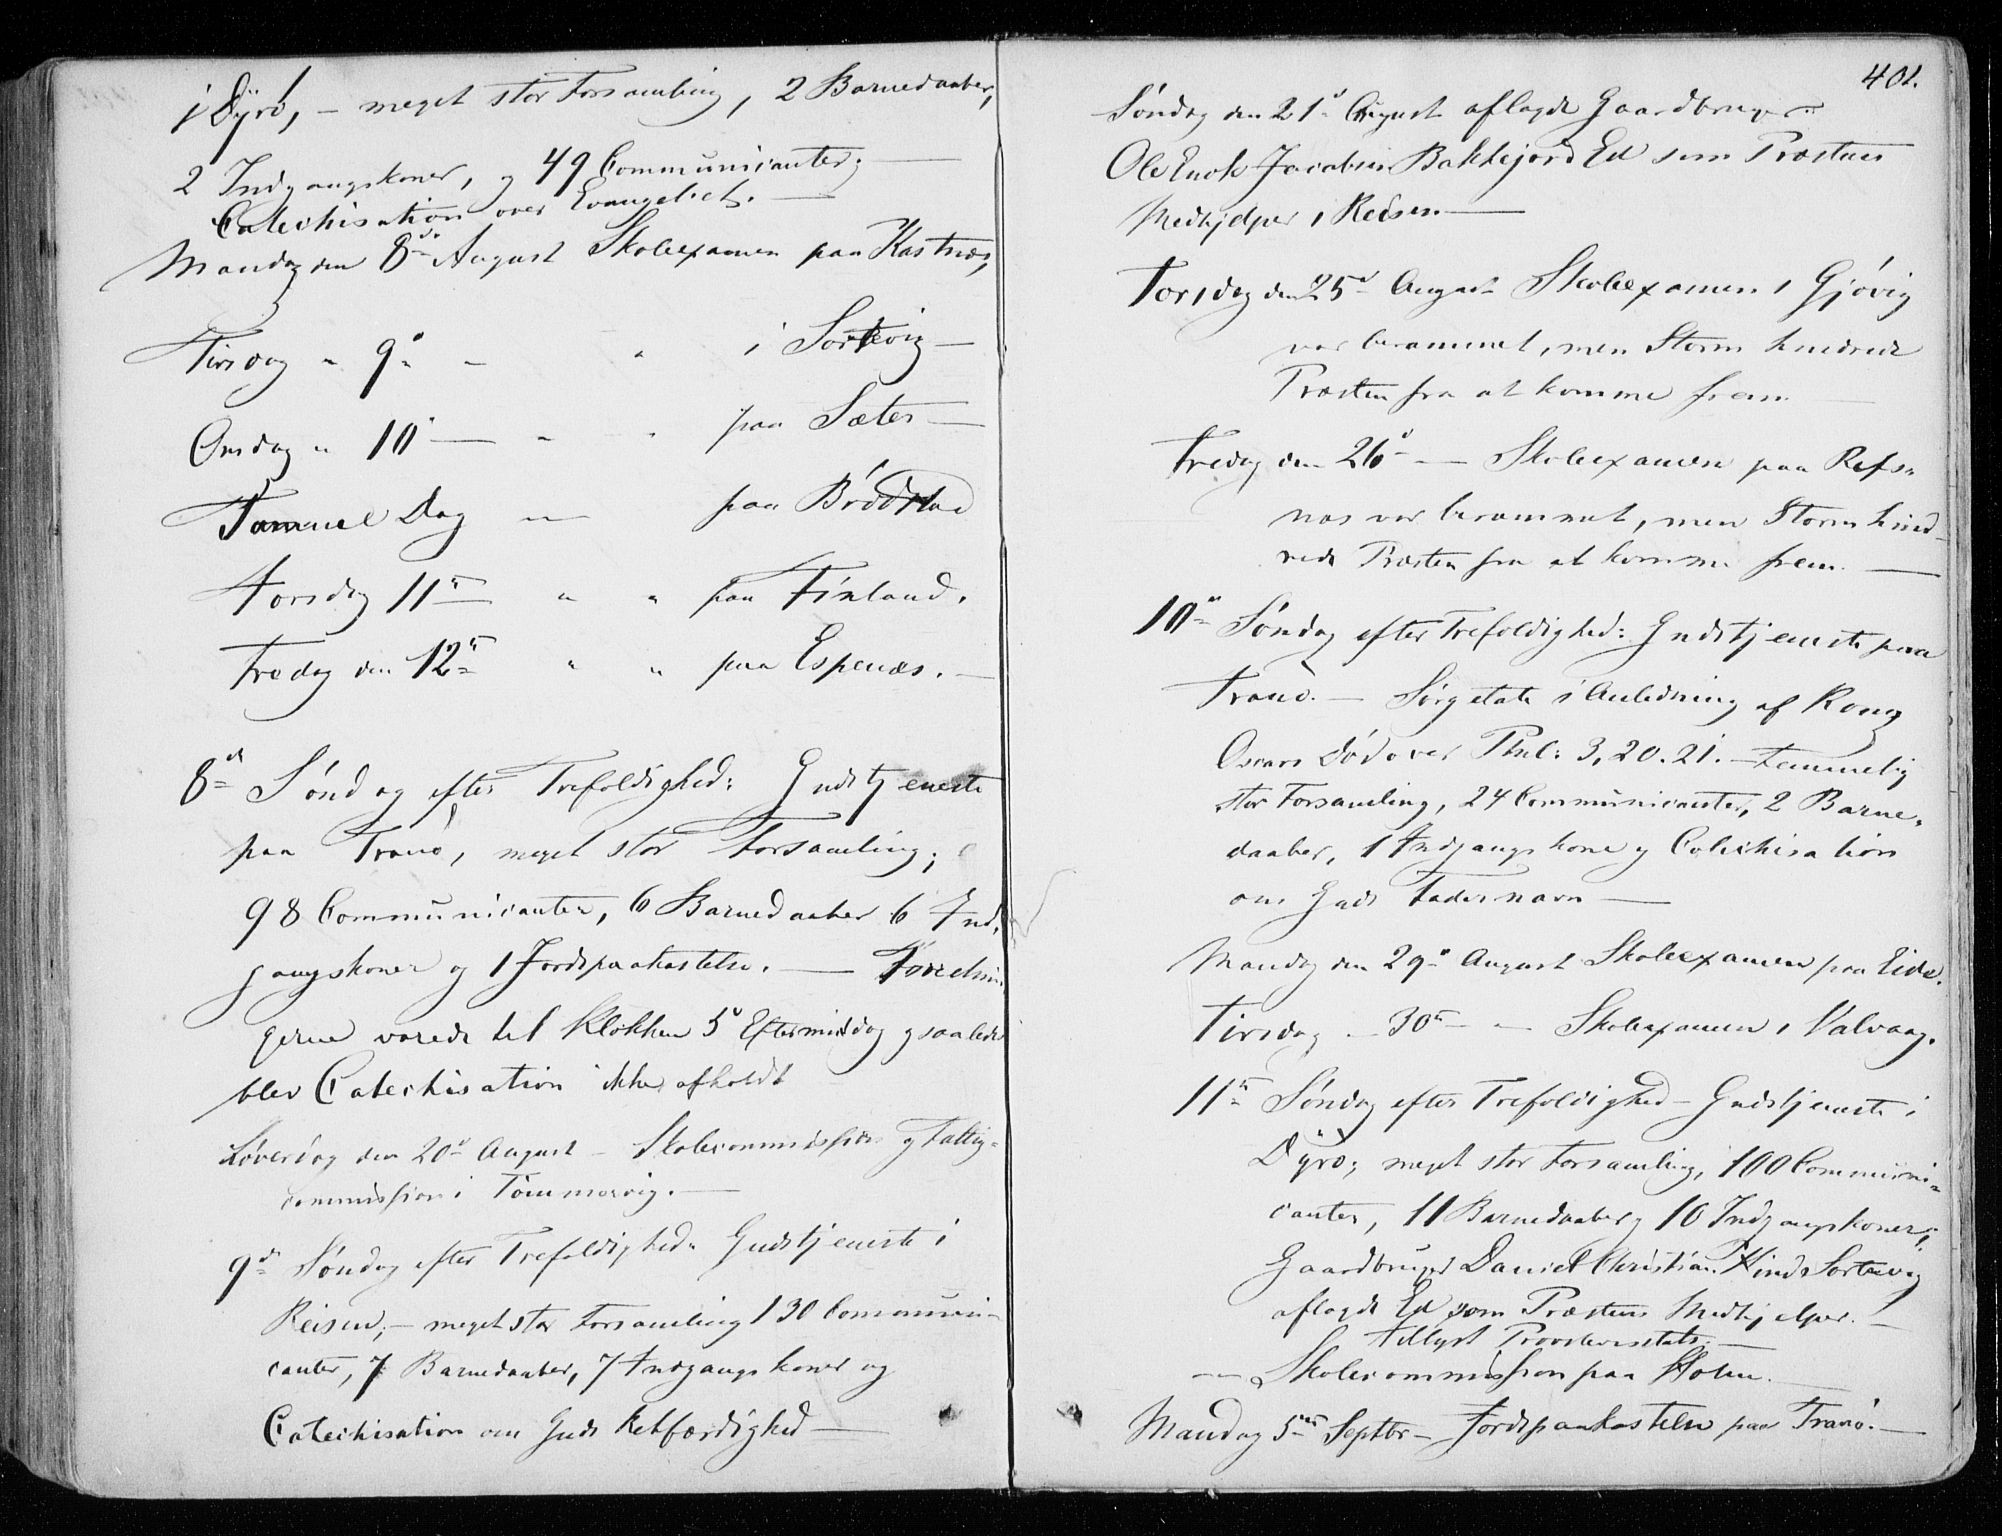 i Dyrö, – meget stor Forsamling, 2 Barnedaaber,
2 Indgangskoner, og 49 Communicanter; —
Catechisation over Evangeliet. —
Mandag den 8de August Skoleexamen paa Kastnæs,
Tirsdag " 9de – " i Sortevig –
Onsdag " 10 — " " paa Sæter –
Samme Dag " — paa Brödstad
Torsdag 11te " " paa Finland.
Fredag den 12te " " paa Espenæs. –
8de Söndag efter Trefoldighed: Gudstjeneste
paa Tranö, meget stor Forsamling;
98 Communicanter, 6 Barnedaaber 6 Ind-
gangskoner og 1 Jordpaakastelse. — Forretnin
gerne varede til Klokken 5 Eftermiddag og saaledes
blev Catechisation ikke afholdt
Löverdag den 20de August – Skolecommission og Fattig-
commission i Tömmervig. —
9de Söndag efter Trefoldighed: Gudstjeneste i
Reisen, – meget stor Forsamling 130 Communi-
canter, 7 Barnedaaber, 7 Indgangskoner og
Catechisation om Guds Retfærdighed —
401.
Söndag den 21de August aflagde Gaardbruger
Ole Enok Jacobsen Bakkejord Ed som Præstens
Medhjelper i Reisen. —
Torsdag den 25de August Skoleexamen i Gjövig
var berammet, men Storm hindrede
Præsten fra at komme frem —
Fredag den 26de — Skoleexamen paa Refs-
næs var berammet, men Storm hind-
rede Præsten fra at komme frem. —
10de Söndag efter Trefoldighed: Gudstjeneste paa
Tranö. – Sörgetale i Anledning af Kong
Oscars Död over Phil: 3, 20. 21. – temmelig
stor Forsamling, 24 Communicanter, 2 Barne-
daaber, 1 Indgangskone og Catechisation
om Guds Fadernavn —
Mandag den 29de August Skoleexamen paa Eide.
Tirsdag – 30te – " Skoleexamen i Valvaag.
11te Söndag efter Trefoldighed – Gudstjeneste i
Dyrö; meget stor Forsamling, 100 Communi-
canter, 11 Barnedaaber og 10 Indgangskoner;
Gaardbruger Daniel Christian Hind Sortevig
aflagde Ed som Præstens Medhjelper. –
tillyst Provstevisitats. –
— Skolecommission paa Holm. —
Mandag 5te Septbr – Jordpaakastelse paa Tranö. —